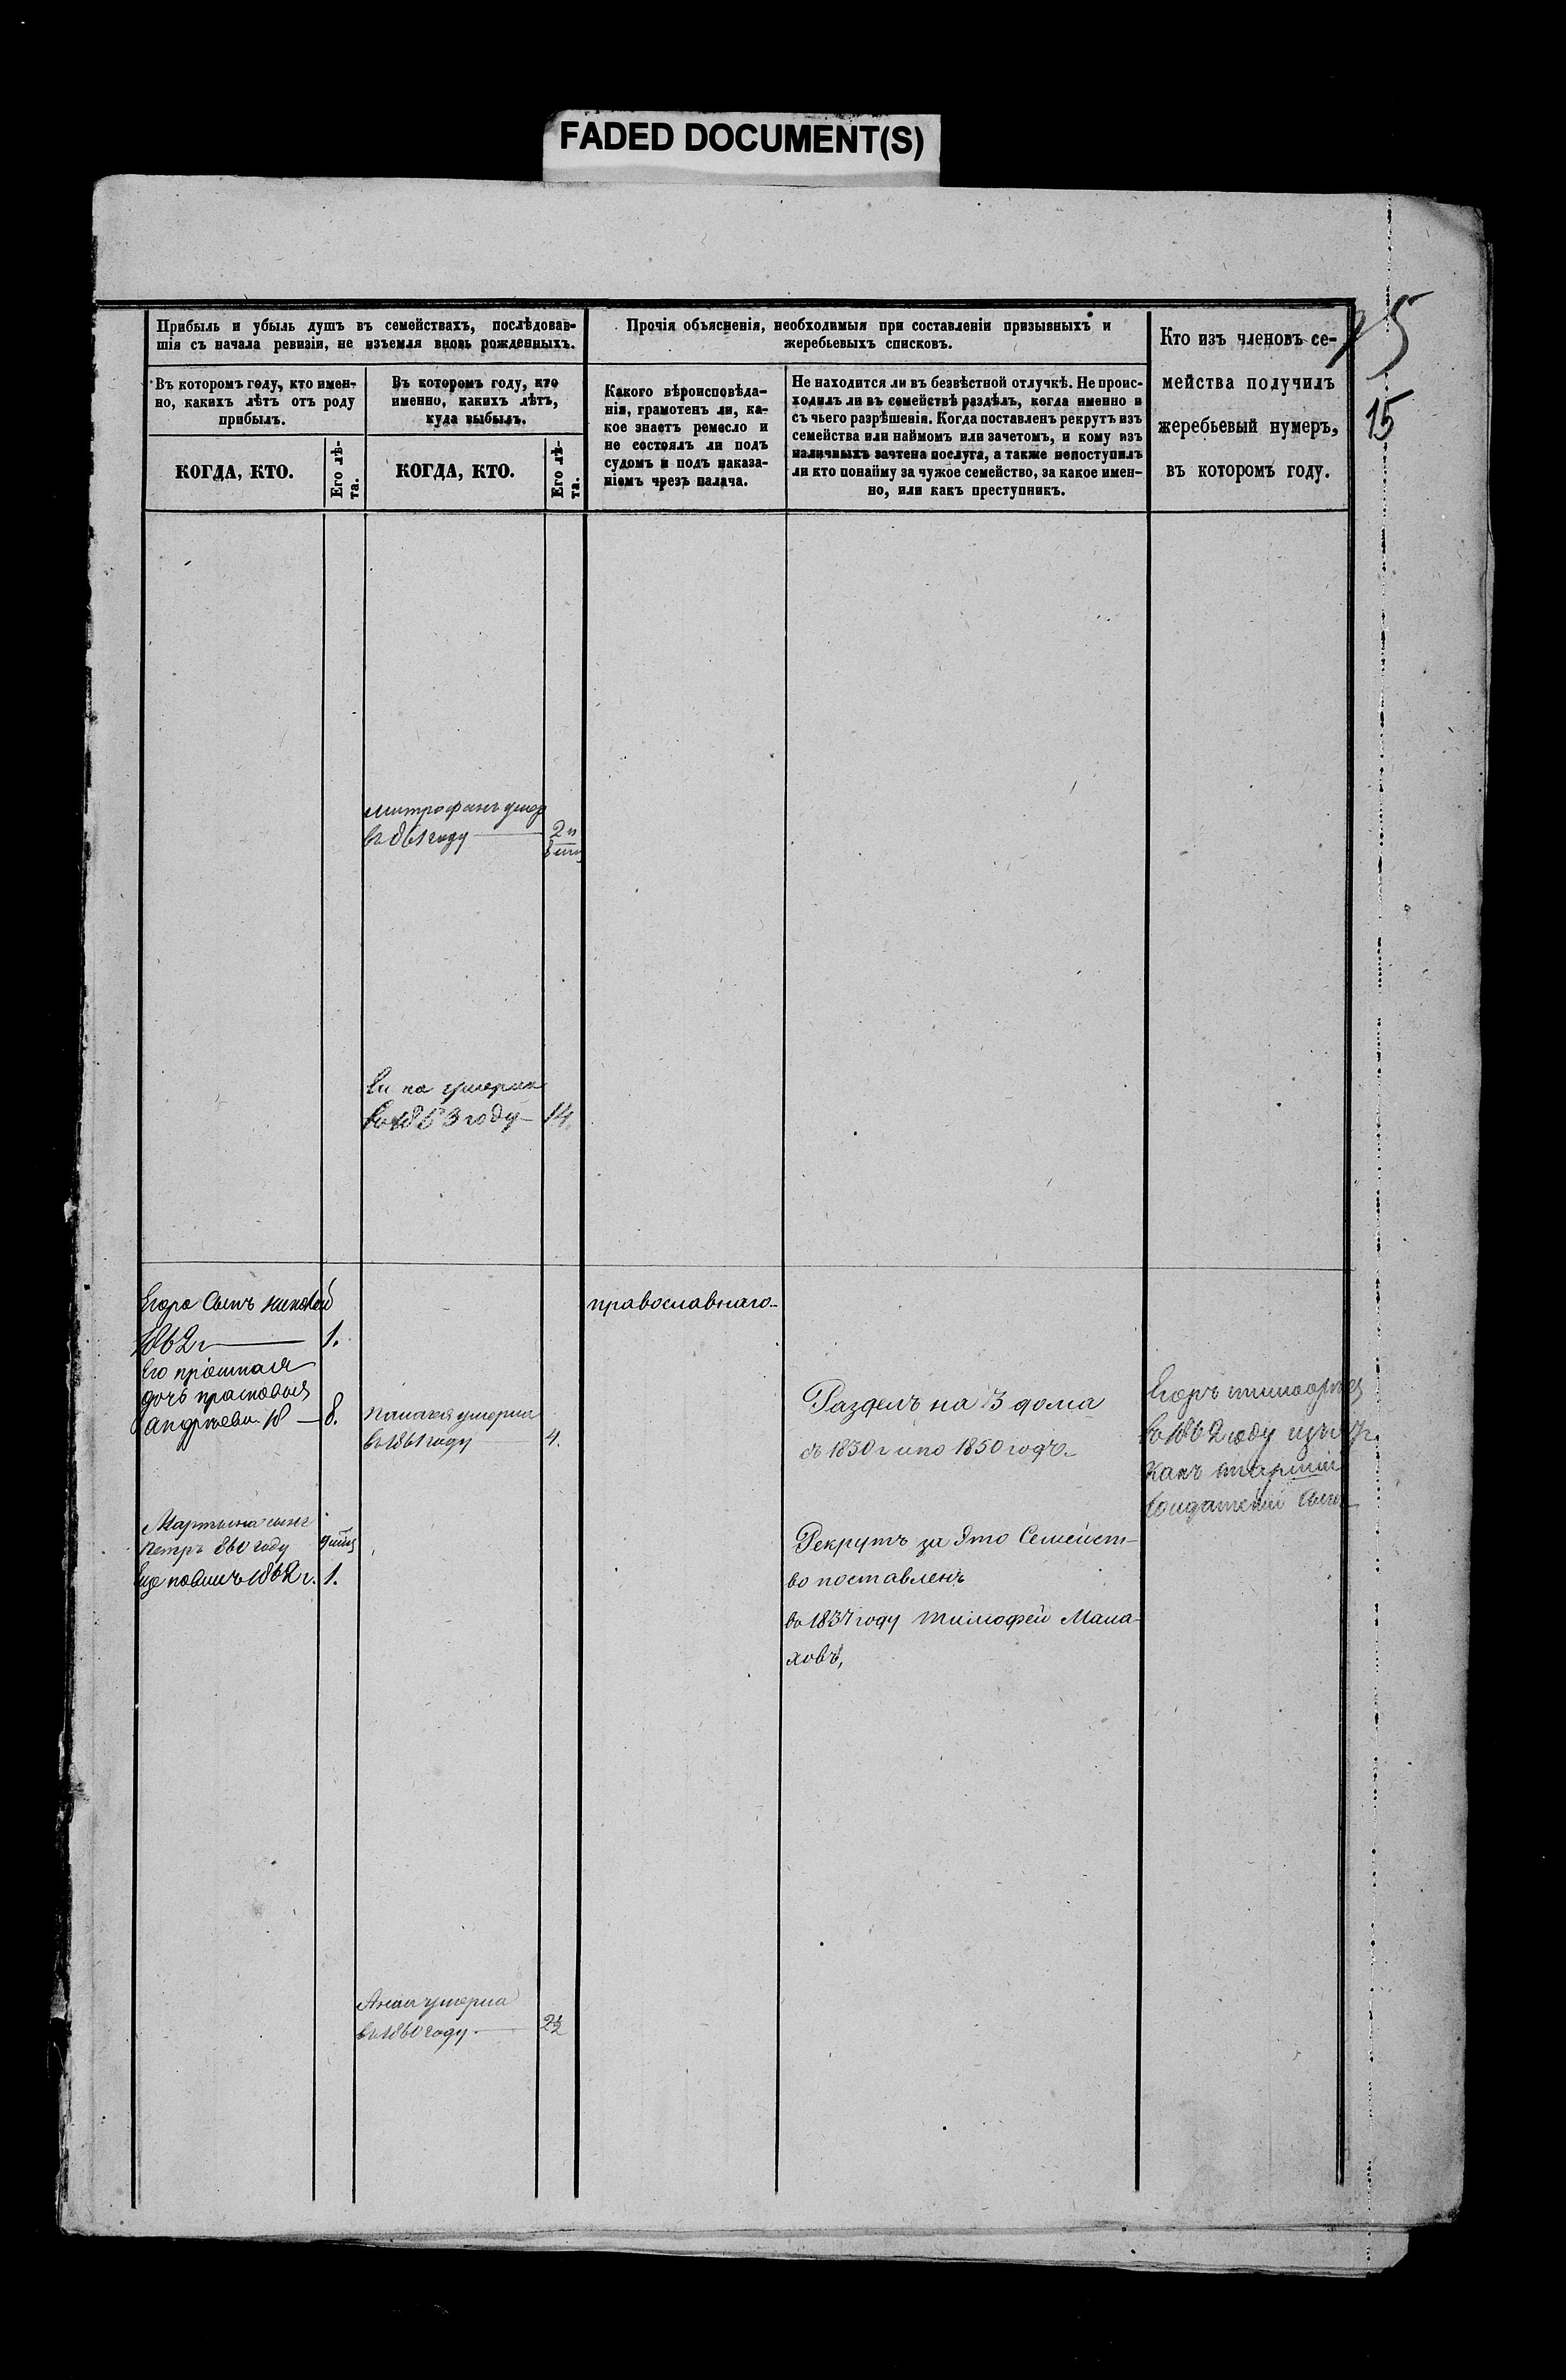 FADED DOCUMENT(S)
15
Прибыль и убыль душъ въ семействахъ, послѣдовав-
шія съ начала ревизіи, не изъемля вновь рожденныхъ.
Въ которомъ году, кто имен-
но, какихъ лѣтъ отъ роду
прибылъ.
КОГДА, КТО.
Его лѣ-
та.
Въ которомъ году, кто
именно, какихъ лѣтъ,
куда выбылъ.
КОГДА, КТО.
Его лѣ-
та.
Прочія объясненія, необходимыя при составленіи призывныхъ и
жеребьевыхъ списковъ.
Какого вѣроисповѣда-
нія, грамотенъ ли, ка-
кое знаетъ ремесло и
не состоялъ ли подъ
судомъ и подъ наказа-
ніемъ чрезъ палача.
Не находится ли въ безвѣстной отлучкѣ. Не проис-
ходилъ ли въ семействѣ раздѣлъ, когда именно и
съ чьего разрѣшенія. Когда поставленъ рекрутъ изъ
семейства или наймомъ или зачетомъ, и кому изъ
наличныхъ зачтена послуга, а также непоступилъ
ли кто понайму за чужое семейство, за какое имен-
но, или какъ преступникъ.
Кто изъ членовъ се-
мейства получилъ
жеребьевый нумеръ,
въ которомъ году.
митрофанъ умер
въ 861 году
2
умерла
во 1863 году 14.
Егора Сынъ
1862 г 1.
Его
дочь
андреева 8.
умерла
въ 1861 году 4.
Мартына сынъ
Петръ 860 году
еще 1862 г. 1.
православнаго
Разделъ на 3 дома
съ 1830 г и по 1850 годъ
Рекрутъ за Это Семейст-
во поставленъ
во 1837 году тимофей Мала-
ховъ,
Егоръ
во 1862 году
Какъ
сынъ
Анна умерла
въ 1860 году